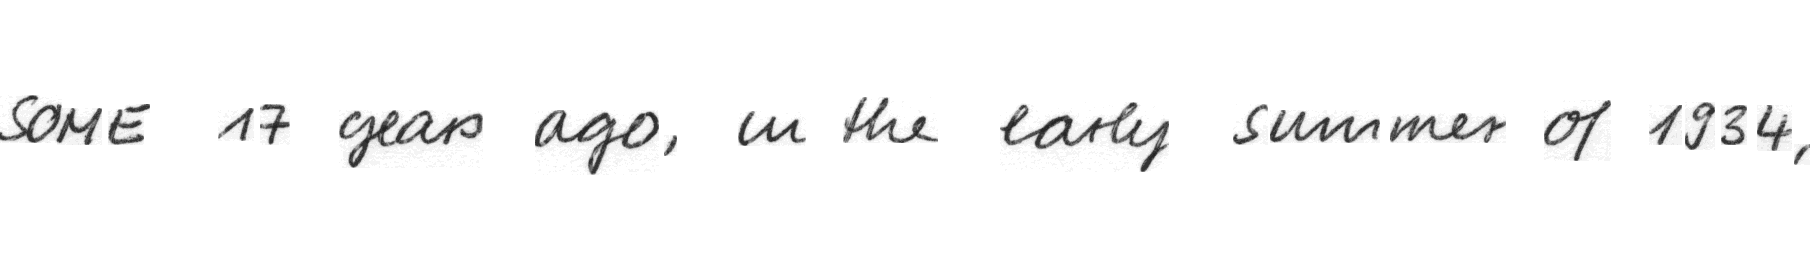 SOME 17 years ago, in the early summer of 1934,